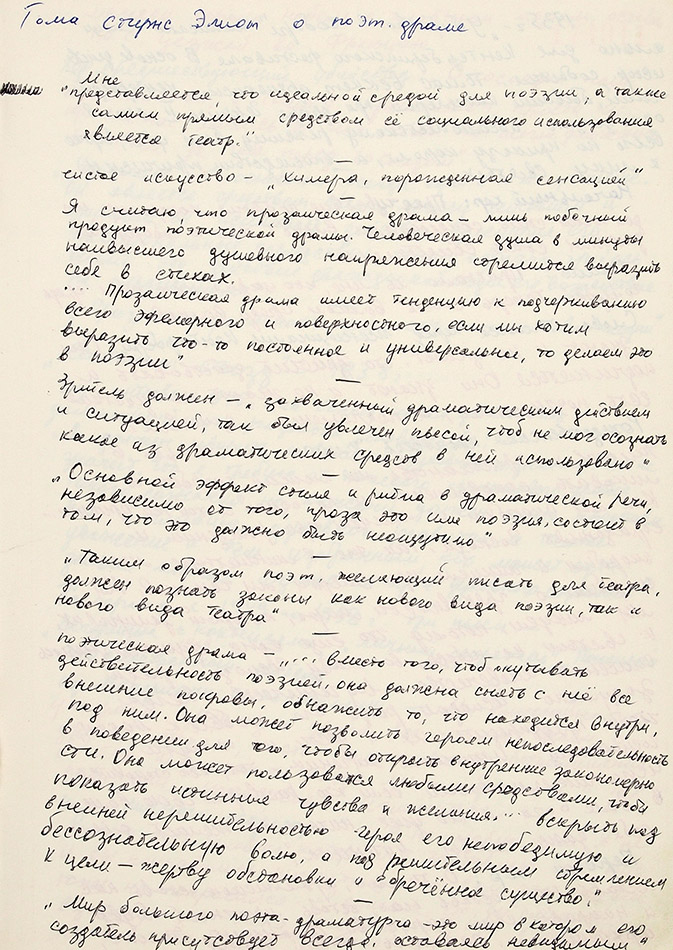 Тома стирнс Элиот о поэт. драме
Мне
"представляется, что идеальной средой для поэзии, а также
самым прямым средством её социального использования
является театр."
—
чистое искусство — „химера, порожденная сенсацией"
—
Я считаю, что прозаическая драма — лишь побочный
продукт поэтической драмы. Человеческая душа в минуты
наивысшего душевного напряжения стремится выразить
себя в стихах.
.... Прозаическая драма имеет тенденцию к подчеркиванию
всего эфемерного и поверхностного, если мы хотим
выразить что-то постоянное и универсальное, то делаем это
в поэзии"
—
Зритель должен — „захваченный драматическим действием
и ситуацией, так был увлечен пьесой, чтоб не мог осознать
какое из драматических средств в ней использовано"
—
„Основной эффект стиля и ритма в драматической речи,
независимо от того, проза это или поэзия, состоит в
том, что это должно быть неощутимо"
—
„Таким образом поэт, желающий писать для театра,
должен познать законы как нового вида поэзии, так и
нового вида театра"
—
поэтическая драма — „... вместо того, чтоб окутывать
действительность поэзией, она должна снять с неё все
внешние покровы, обнажить то, что находится внутри,
под ним. Она может позволить героям непоследовательность
в поведении для того, чтобы открыть внутренние закономерно
сти. Она может пользоватся любыми средствами, чтобы
показать истинные чувства и желания... вскрыть под
внешней нерешительностью героя его непобедимую и
бессознательную волю, а под решительным стремлением
к цели — жертву обстановки и обречённое существо."
—
„Мир большого поэта-драматурга — это мир в котором его
создатель присутствует всегда, оставаясь невидимым"